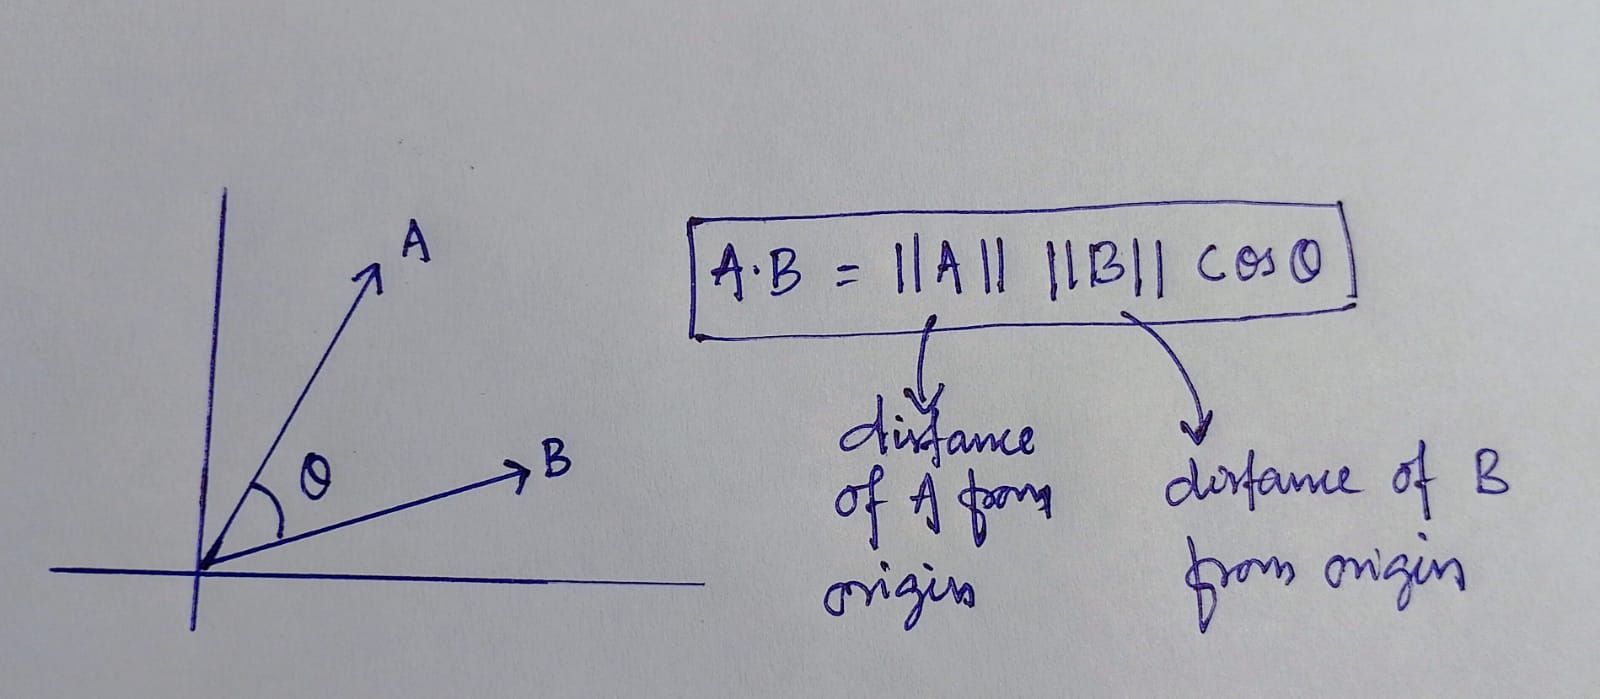 A
B
θ
A·B = ||A|| ||B|| cos θ
distance
of A from
origin
distance of B
from origin